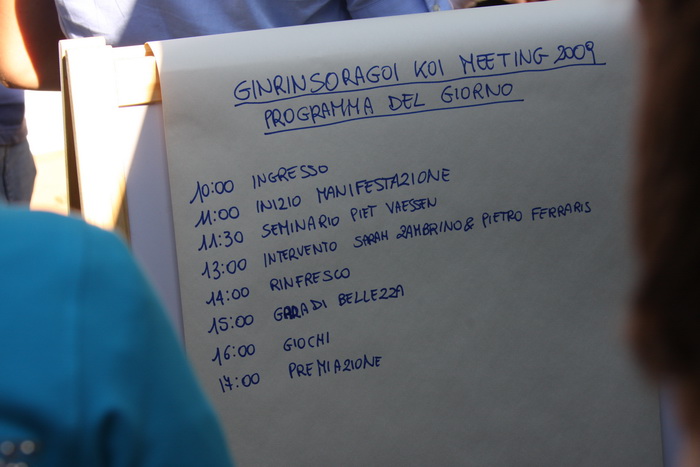 GINRINSORAGOI KOI MEETING 2009
PROGRAMMA DEL GIORNO
10:00 INGRESSO
11:00 INIZIO MANIFESTAZIONE
11:30 SEMINARIO PIET VAESSEN
13:00 INTERVENTO SARAH ZAMBRINO & PIETRO FERRARIS
14:00 RINFRESCO
15:00 GARA DI BELLEZZA
16:00 GIOCHI
17:00 PREMIAZIONE